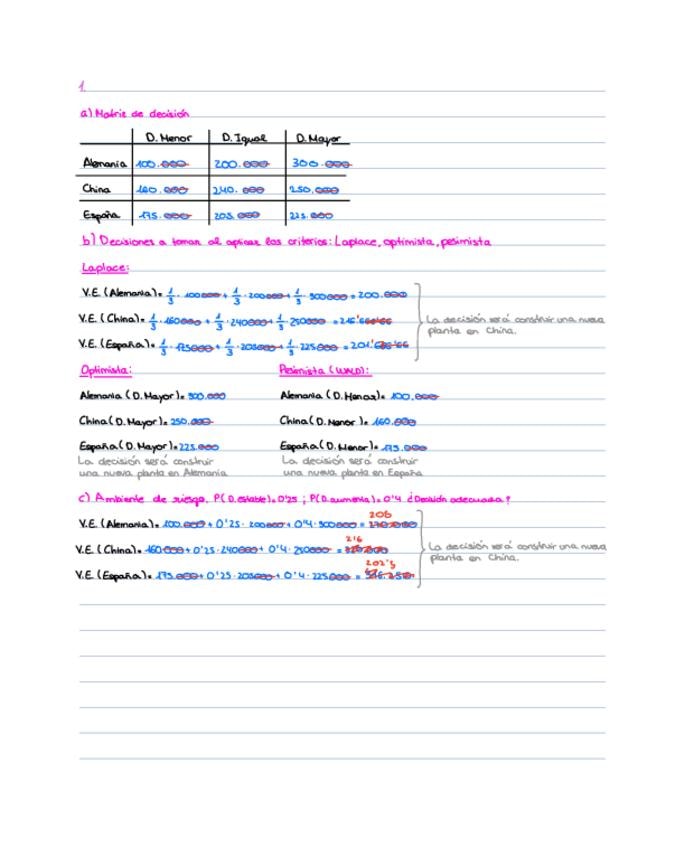 1.
a) Matriz de decisión
D. Menor D. Igual D. Mayor
Alemania 100.000 200.000 300.000
China 160.000 240.000 250.000
España 175.000 205.000 225.000
b) Decisiones a tomar al aplicar los criterios: Laplace, optimista, pesimista
Laplace:
V.E. (Alemania)= 1/3 · 100000 + 1/3 · 200000 + 1/3 · 300000 = 200.000
V.E. (China)= 1/3 · 160000 + 1/3 · 240000 + 1/3 · 250000 = 216'666'66
V.E. (España)= 1/3 · 175000 + 1/3 · 205000 + 1/3 · 225000 = 201'666'66
La decisión será construir una nueva
planta en China.
Optimista: Pesimista (WALD):
Alemania (D. Mayor)= 300.000 Alemania (D. Menor)= 100.000
China (D. Mayor)= 250.000 China (D. Menor)= 160.000
España (D. Mayor)= 225.000 España (D. Menor)= 175.000
La decisión será construir La decisión será construir
una nueva planta en Alemania una nueva planta en España
c) Ambiente de riesgo. P(D.estable)=0'25 ; P(D.aumenta)=0'4 ¿Decisión adecuada?
V.E. (Alemania)= 100.000 + 0'25 · 200000 + 0'4 · 300000 = 205
V.E. (China)= 160000 + 0'25 · 240000 + 0'4 · 250000 = 216
V.E. (España)= 175.000 + 0'25 · 205000 + 0'4 · 225000 = 202'5
La decisión será construir una nueva
planta en China.